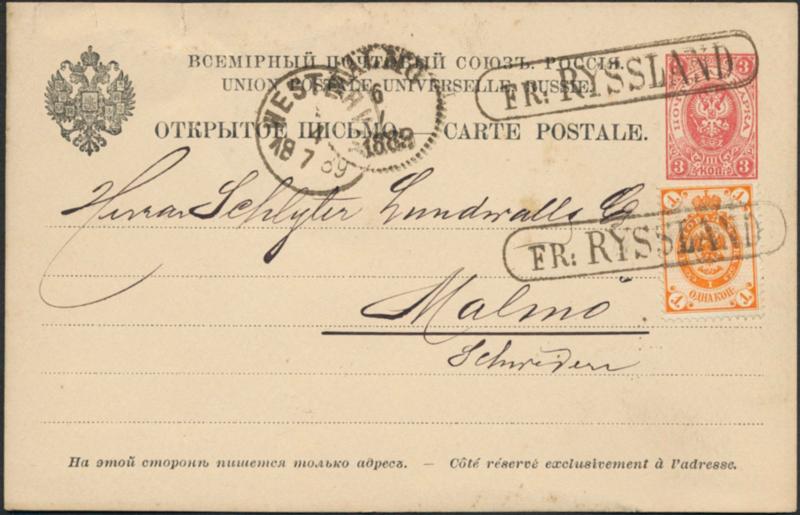 ВСЕМІРНЫЙ ПОЧТОВЫЙ СОЮЗЪ. РОССІЯ.
UNION POSTALE UNIVERSELLE. RUSSIE.
ОТКРЫТОЕ ПИСЬМО. — CARTE POSTALE.
FR: RYSSLAND
3
3
3 КОП. 3
MALMÖ
6
7
1889
7 89
Herren Schlyter Lundwalls Co
FR: RYSSLAND
1 1
ОДНА КОП.
1 1
Malmö
Schweden
На этой сторонѣ пишется только адресъ. — Côté réservé exclusivement à l'adresse.